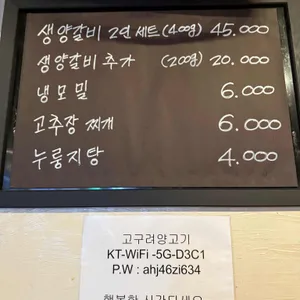 생양갈비 2인 세트 (400g) 45.000
생양갈비 추가 (200g) 20.000
냉모밀 6.000
고추장 찌개 6.000
누룽지탕 4.000
고구려양고기
KT-WiFi -5G-D3C1
P.W : ahj46zi634
행복한 시간되세요